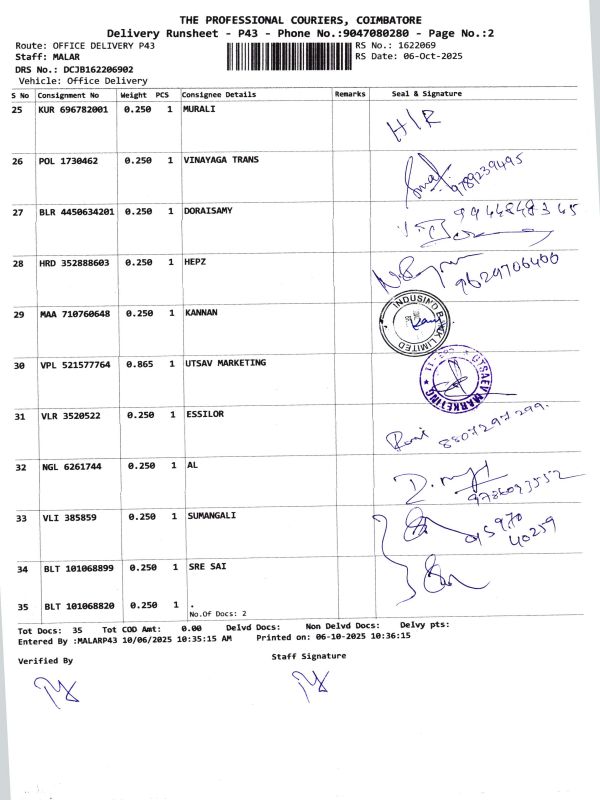 THE PROFESSIONAL COURIERS, COIMBATORE
Delivery Runsheet - P43 - Phone No.:9047080280 - Page No.:2
Route: OFFICE DELIVERY P43 RS No.: 1622069
Staff: MALAR RS Date: 06-Oct-2025
DRS No.: DCJB162206902
Vehicle: Office Delivery
S No Consignment No Weight PCS Consignee Details Remarks Seal & Signature
25 KUR 696782001 0.250 1 MURALI H/R
26 POL 1730462 0.250 1 VINAYAGA TRANS 9789239495
27 BLR 4450634201 0.250 1 DORAISAMY
28 HRD 352888603 0.250 1 HEPZ 9629706400
29 MAA 710760648 0.250 1 KANNAN INDUSIND BANK LIMITED
30 VPL 521577764 0.865 1 UTSAV MARKETING UTSAEV MARKETING
31 VLR 3520522 0.250 1 ESSILOR 8807297299.
32 NGL 6261744 0.250 1 AL
33 VLI 385859 0.250 1 SUMANGALI 95970
40259
34 BLT 101068899 0.250 1 SRE SAI
35 BLT 101068820 0.250 1 .
No.Of Docs: 2
Tot Docs: 35 Tot COD Amt: 0.00 Delvd Docs: Non Delvd Docs: Delvy pts:
Entered By :MALARP43 10/06/2025 10:35:15 AM Printed on: 06-10-2025 10:36:15
Verified By Staff Signature